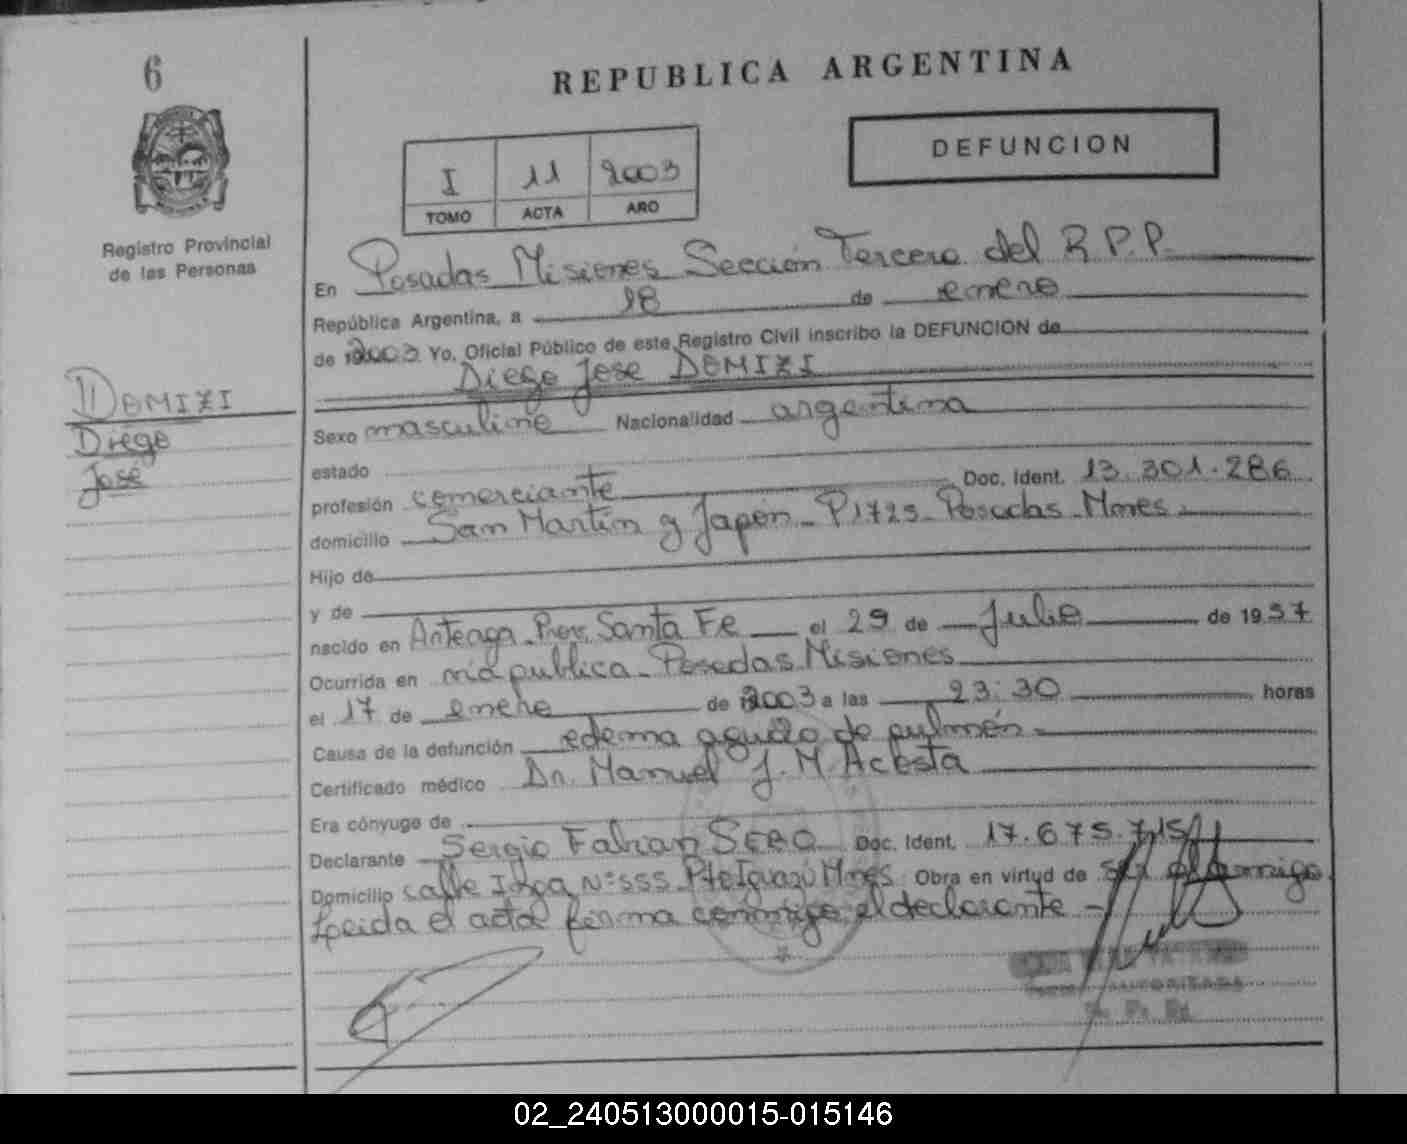 6
REPUBLICA ARGENTINA
DEFUNCION
I 11 2003
TOMO ACTA AÑO
Registro Provincial
de las Personas
En Posadas Misiones Sección Tercera del R.P.P.
República Argentina, a 18 de enero
de 2003 Yo, Oficial Público de este Registro Civil inscribo la DEFUNCION de
Diego Jose DOMIZI
DOMIZI
Diego
José
Sexo masculino Nacionalidad argentina
estado
profesión comerciante Doc. Ident. 13.301.286
domicilio San Martín y Japón - P1725 - Posadas - Mnes
Hijo de
y de
nacido en Arteaga - Prov. Santa Fe el 29 de Julio de 1957
Ocurrida en vía publica - Posadas Misiones
el 17 de enero de 2003 a las 23:30 horas
Causa de la defunción edema agudo de pulmón
Certificado médico Dr. Manuel J. M. Acosta
Era cónyuge de
Declarante Sergio Fabian Doc. Ident. 17.675.715
Domicilio calle N° 555 - Pto Iguazú Mnes Obra en virtud de ser el amigo
Leida el acta firma conmigo el declarante -
AUTORIZADA
02_240513000015-015146